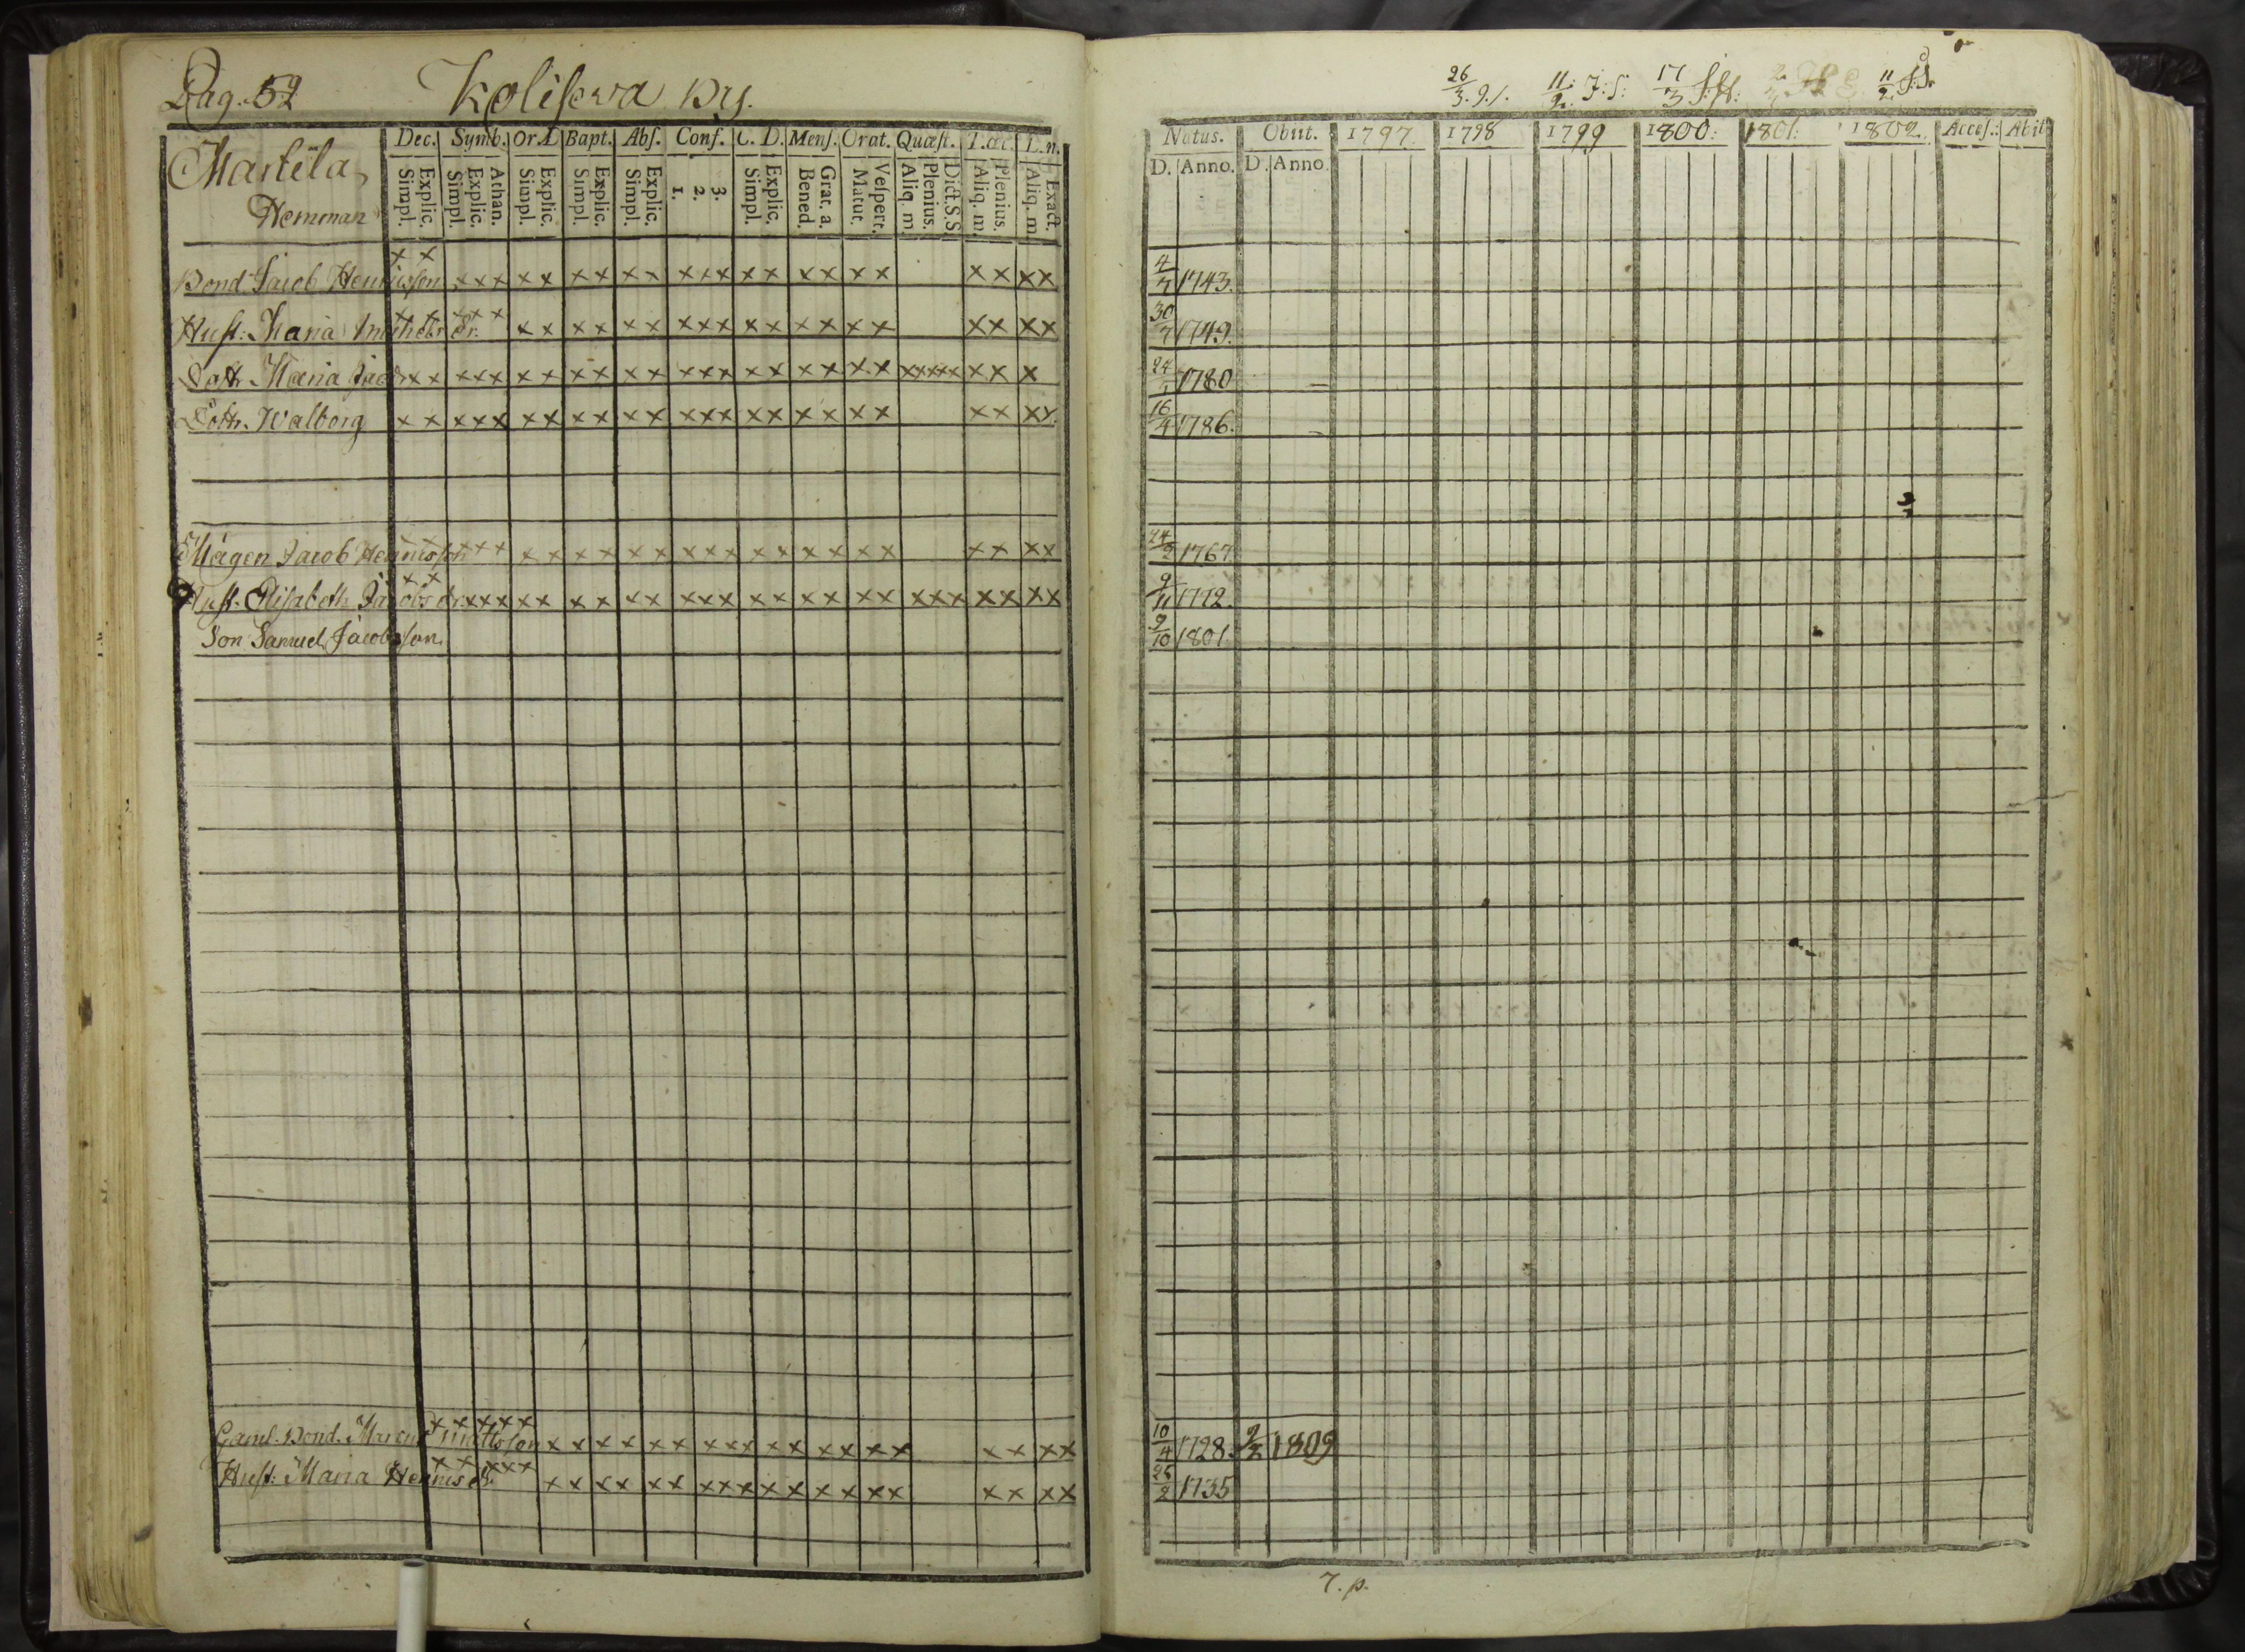 Pag. 52 Koliseva By.
Martila Hemman
Dec. Symb. Or.D Bapt. Abſ. Conf. C. D. Menſ. Orat. Quæſt. T.œc. L.n.
Simpl. Explic. Simpl. Explic. Athan. Simpl. Explic. Simpl. Explic. Simpl. Explic. 1. 2. 3. Simpl. Explic. Bened. Grat. a. Matut. Veſpert. Aliq. m Plenius. Dict.S.S Aliq. m. Plenius. Aliq. m Exact.
Bond Jacob Henricsson x x x x x x x x x x x x x x x x x x x x x x x x
Hust: Maria Math dr x x x x x x x x x x x x x x x x x x x x x x x x
Dottr Maria Jac dr x x x x x x x x x x x x x x x x x x x x x x x x x x x x
Dottr. Walborg x x x x x x x x x x x x x x x x x x x x x x x x
Mågen Jacob Henricsson x x x x x x x x x x x x x x x x x x x x x x x x
Hust. Elisabeth Jacobs dr x x x x x x x x x x x x x x x x x x x x x x x x x x x
Son Samuel Jacobsson
Gaml. Bond. Marcus Mattsson x x x x x x x x x x x x x x x x x x x x x x x x
Hust: Maria Henrics dr x x x x x x x x x x x x x x x x x x x x x x x x
26/3. 11/2. J:S: 17/3 11/2
Natus. Obiit. 1797 1798 1799 1800: 1801: 1802 Acceſ.: Abiit
D. Anno. D. Anno.
4/7 1743.
30/7 1749.
1780
16/4 1786.
24/2 1767
9/11 1772.
9/10 1801
10/4 1728. 2/2 1809
25/2 1735
7. p.